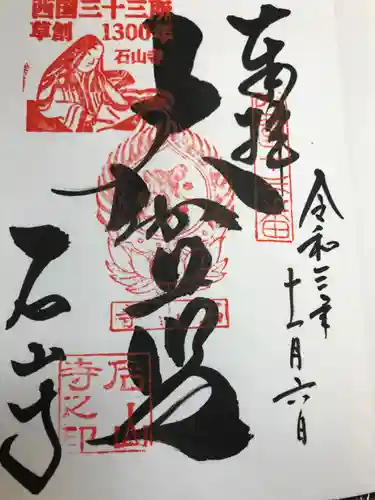 西国三十三所
草創 1300年
石山寺
奉拝
令和三年
十一月六日
大伽藍
石山寺
石山
寺之印